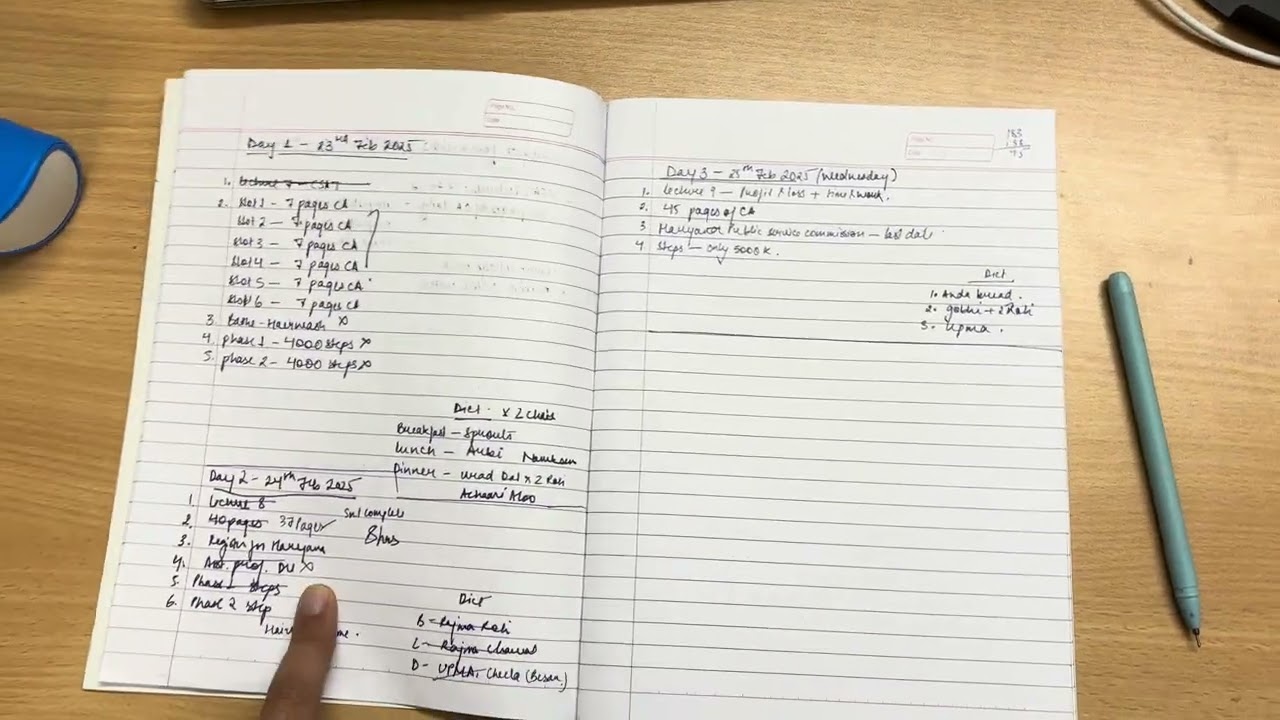 Page No.
Date
Day 1 - 23rd Feb 2025
1. Lecture 7 - CSAT
2. Slot 1 - 7 pages CA
Slot 2 - 7 pages CA
Slot 3 - 7 pages CA
Slot 4 - 7 pages CA
Slot 5 - 7 pages CA
Slot 6 - 7 pages CA
3. Bathe - Hairwash x
4. phase 1 - 4000 steps x
5. phase 2 - 4000 steps x
Diet. x 2 Chais
Breakfast - Sprouts
Lunch - Arbi Namkeen
Dinner - urad Dal x 2 Roti
Achaari Aloo
Day 2 - 24th Feb 2025
1. Lecture 8
2. 40 pages 37 Pages
8hrs
3. Haryana
4. Asst. prof. DU x
5. Phase 1 steps
6. Phase 2 step
Diet
B - Rajma Roti
L - Rajma Chawal
D - UPMA, Cheela (Besan)
Page No.
Date
183
138
45
Day 3 - 25th Feb 2025 (Wednesday)
1. Lecture 9 - Profit & Loss + Time & Work.
2. 45 pages of CA
3 Haryana Public service commission - last date
4. Steps - only 5000 k.
Diet
1. Anda bread.
2. gobhi + 2 Roti
3. Upma.